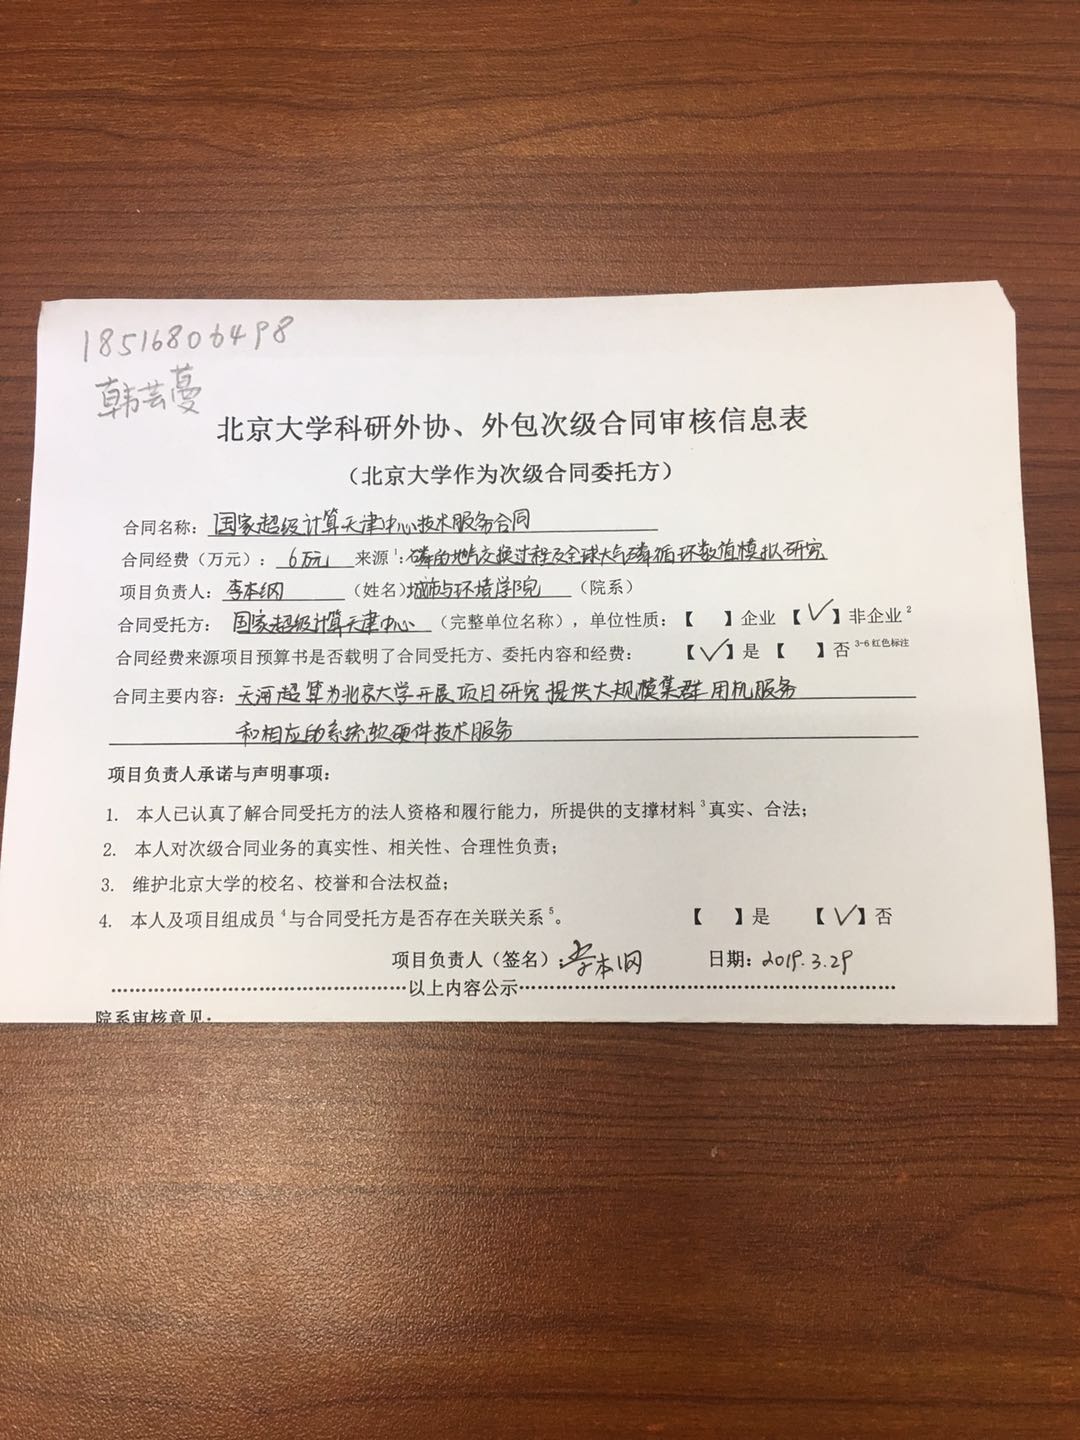 18516806498
韩芸蔓
北京大学科研外协、外包次级合同审核信息表
（北京大学作为次级合同委托方）
合同名称：国家超级计算天津中心技术服务合同
合同经费（万元）：6万元 来源1：磷的地气交换过程及全球大气磷循环数值模拟研究
项目负责人：李本纲（姓名）城市与环境学院（院系）
合同受托方：国家超级计算天津中心（完整单位名称），单位性质：【 】企业【√】非企业2
合同经费来源项目预算书是否载明了合同受托方、委托内容和经费：【√】是【 】否3-6红色标注
合同主要内容：天河超算为北京大学开展项目研究提供大规模集群用机服务
和相应的系统软硬件技术服务
项目负责人承诺与声明事项：
1. 本人已认真了解合同受托方的法人资格和履行能力，所提供的支撑材料3真实、合法；
2. 本人对次级合同业务的真实性、相关性、合理性负责；
3. 维护北京大学的校名、校誉和合法权益；
4. 本人及项目组成员4与合同受托方是否存在关联关系5。【 】是【√】否
项目负责人（签名）：李本纲 日期：2019.3.29
以上内容公示
院系审核意见：